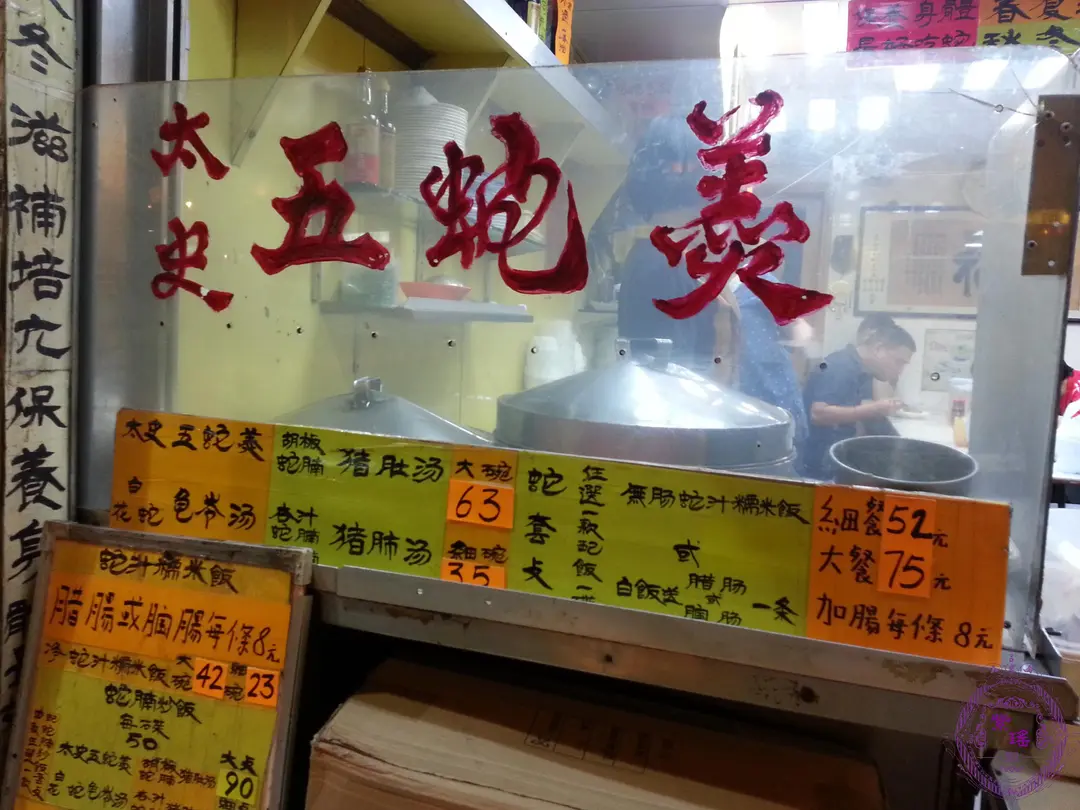 冬
滋
補
培
亢
保
養
身
太史
五蛇羹
太史五蛇羹
白花蛇 龟岺汤
胡椒蛇腩 猪肚汤
杏汁蛇腩 猪肺汤
大碗 63
細碗 35
蛇套
任選一款配飯一
無肠蛇汁糯米飯
或
白飯送 腊肠 或 膶肠 一条
細餐 52元
大餐 75元
加腸每條8元
蛇汁糯米飯
腊腸或膶腸每條8元
净蛇汁糯米飯 大碗 42 細碗 23
蛇腩炒飯
每碟
50
太史五蛇羹 胡椒蛇腩猪肚汤
白花蛇龟岺汤 杏汁
90